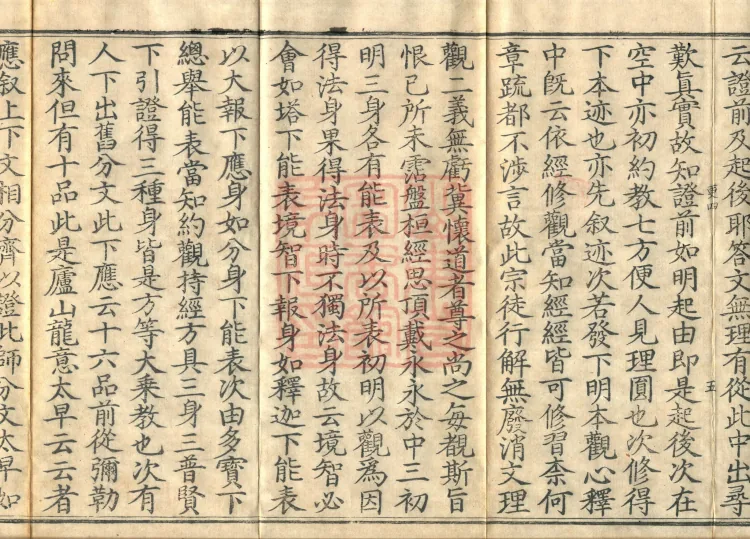 云證前及起後耶答文無理有從此中出尋
歎真實故知證前如明起由即是起後次在
東四 五
空中亦初約教七方便人見理圓也次修得
下本迹也亦先叙迹次若發下明本觀心釋
中既云依經修觀當知經經皆可修習柰何
章疏都不涉言故此宗徒行解無廢消文理
觀二義無虧冀懷道者尊之尚之每覩斯旨
恨已所未霑盤桓經思頂戴永永於中三初
明三身各有能表及以所表初明以觀為因
得法身果得法身時不獨法身故云境智必
會如塔下能表境智下報身如釋迦下能表
以大報下應身如分身下能表次由多寶下
總舉能表當知約觀持經方具三身三普賢
下引證得三種身皆是方等大乘教也次有
人下出舊分文此下應云十六品前從彌勒
問來但有十品此是廬山龍意太早云云者
應叙上下文相分齊以證此師分文太早如